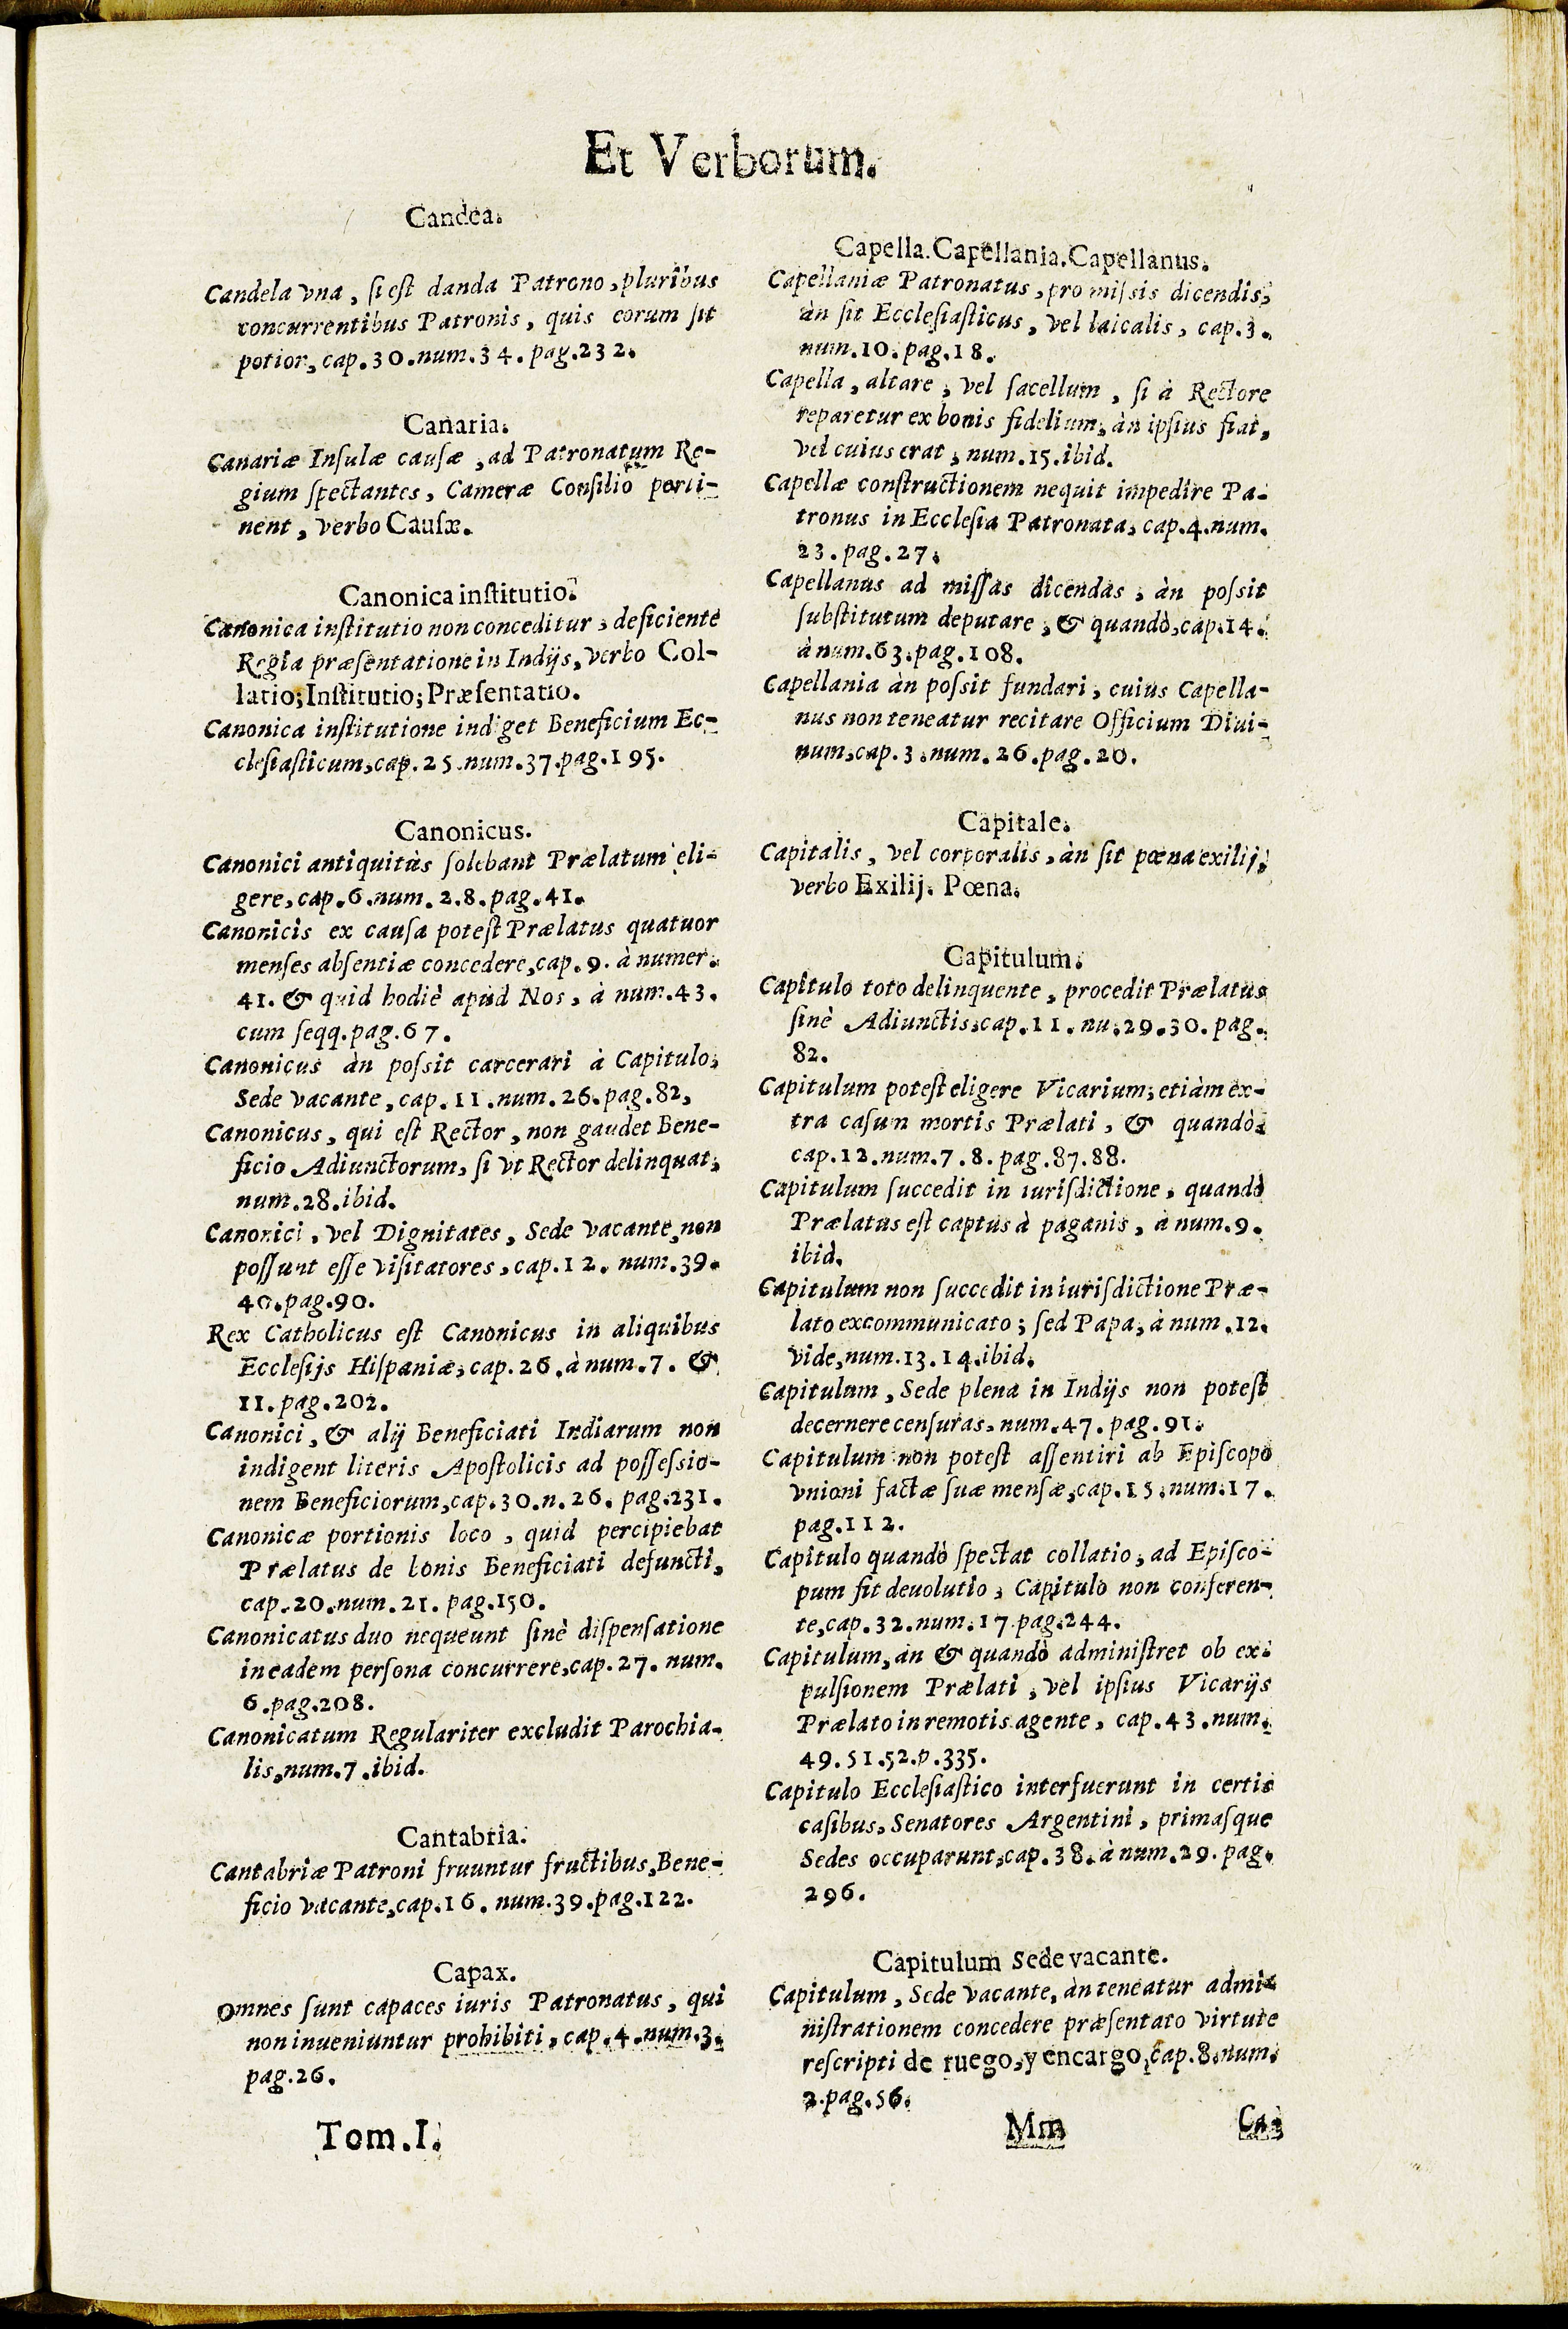 Et Verborum.
Candea.
Candela vna, si est danda Patrono, pluribus
concurrentibus Patronis, quis eorum sit
potior, cap.30.num.34.pag.232.
Canaria.
Canariæ Insulæ causæ, ad Patronatum Re-
gium spectantes, Cameræ Consilio perti-
nent, verbo Causæ.
Canonica institutio.
Canonica institutio non conceditur, deficiente
Regia præsentatione in Indijs, verbo Col-
latio; Institutio; Præsentatio.
Canonica institutione indiget Beneficium Ec-
clesiasticum, cap.25.num.37.pag.195.
Canonicus.
Canonici antiquitùs solebant Prælatum eli-
gere, cap.6.num.2.8.pag.41.
Canonicis ex causa potest Prælatus quatuor
menses absentiæ concedere, cap.9. à numer.
41. & quid hodiè apud Nos, à num.43.
cum seqq.pag.67.
Canonicus àn possit carcerari à Capitulo,
Sede vacante, cap.11.num.26.pag.82,
Canonicus, qui est Rector, non gaudet Bene-
ficio Adiunctorum, si vt Rector delinquat,
num.28.ibid.
Canonici, vel Dignitates, Sede vacante, non
possunt esse visitatores, cap.12. num.39.
40.pag.90.
Rex Catholicus est Canonicus in aliquibus
Ecclesijs Hispaniæ, cap.26.à num.7. &
11.pag.202.
Canonici, & alij Beneficiati Indiarum non
indigent literis Apostolicis ad possessio-
nem Beneficiorum, cap.30.n.26. pag.231.
Canonicæ portionis loco, quid percipiebat
Prælatus de bonis Beneficiati defuncti,
cap.20.num.21. pag.150.
Canonicatus duo nequeunt sinè dispensatione
in eadem persona concurrere, cap.27. num.
6.pag.208.
Canonicatum Regulariter excludit Parochia-
lis, num.7.ibid.
Cantabria.
Cantabriæ Patroni fruuntur fructibus, Bene-
ficio vacante, cap.16. num.39.pag.122.
Capax.
Omnes sunt capaces iuris Patronatus, qui
non inueniuntur prohibiti, cap.4.num.3.
pag.26.
Tom.I.
Capella. Capellania. Capellanus.
Capellaniæ Patronatus, pro missis dicendis,
àn sit Ecclesiasticus, vel laicalis, cap.3.
num.10.pag.18.
Capella, altare, vel sacellum, si à Rectore
reparetur ex bonis fidelium, àn ipsius fiat,
vel cuius erat, num.15.ibid.
Capellæ constructionem nequit impedire Pa-
tronus in Ecclesia Patronata, cap.4.num.
23.pag.27.
Capellanus ad missas dicendas, àn possit
substitutum deputare, & quandò, cap.14.
à num.63.pag.108.
Capellania àn possit fundari, cuius Capella-
nus non teneatur recitare Officium Diui-
num, cap.3.num.26.pag.20.
Capitale.
Capitalis, vel corporalis, àn sit pœna exilij,
verbo Exilij. Pœna.
Capitulum.
Capitulo toto delinquente, procedit Prælatus
sinè Adiunctis, cap.11.nu.29.30. pag.
82.
Capitulum potest eligere Vicarium, etiàm ex-
tra casun mortis Prælati, & quandò,
cap.12.num.7.8.pag.87.88.
Capitulum succedit in iurisdictione, quandò
Prælatus est captus à paganis, à num.9.
ibid.
Capitulum non succedit in iurisdictione Præ-
lato excommunicato; sed Papa, à num.12.
vide, num.13.14.ibid.
Capitulum, Sede plena in Indijs non potest
decernere censuras, num.47.pag.91.
Capitulum non potest assentiri ab Episcopo
vnioni factæ suæ mensæ, cap.15.num.17.
pag.112.
Capitulo quandò spectat collatio, ad Episco-
pum fit deuolutio, Capitulo non conferen-
te, cap.32.num.17.pag.244.
Capitulum, àn & quandò administret ob ex-
pulsionem Prælati, vel ipsius Vicarijs
Prælato in remotis agente, cap.43.num.
49.51.52.p.335.
Capitulo Ecclesiastico interfuerunt in certis
casibus, Senatores Argentini, primasque
Sedes occuparunt, cap.38.à num.29. pag.
296.
Capitulum Sede vacante.
Capitulum, Sede vacante, àn teneatur admi-
nistrationem concedere præsentato virtute
rescripti de ruego, y encargo, cap.8.num.
2.pag.56.
Mm
Ca-